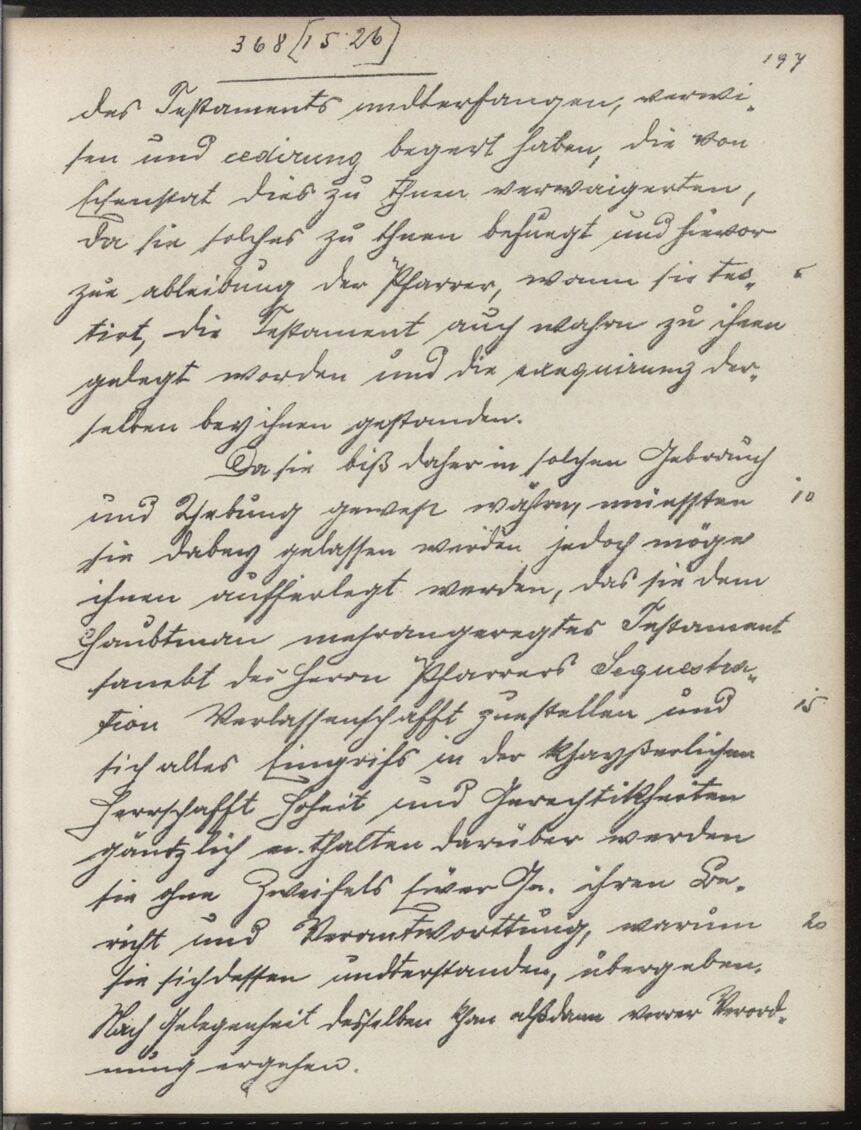 368 [15 26]
197
des Testaments undterfangen, verwi-
sen und cedirung begert haben, die von
Eisenstat dies zu thuen verwaigerten,
da sie solches zu thuen befuegt und hievor
zue ableibung der Pfarrer, wann sie tes- 5
tirt, die Testament auch wahrn zu ihnen
gelegt worden und die exequirung der-
selben bey ihnen gestanden.
Da sie biß daher in solchen Gebrauch
und Yebung gewest währn, müessten 10
sie dabey gelassen werden jedoch möge
ihnen aufferlegt werden, das sie dem
Haubtman mehrangeregtes Testament
sambt des Herrn Pfarrers Sequestra-
tion Verlassenschafft zuestellen und 15
sich alles Eingrifs in der khayßerlichen
Herrschafft Hoheit und Gerechtikheiten
gäntzlich enthalten darüber werden
sie ohne Zweifels Eüer Gn. ihren Be-
richt und Verantworttung, warum 20
sie sich dessen undterstanden, übergeben.
Nach Gelegenheit desselben khan alßdann Verord-
nung ergehen.